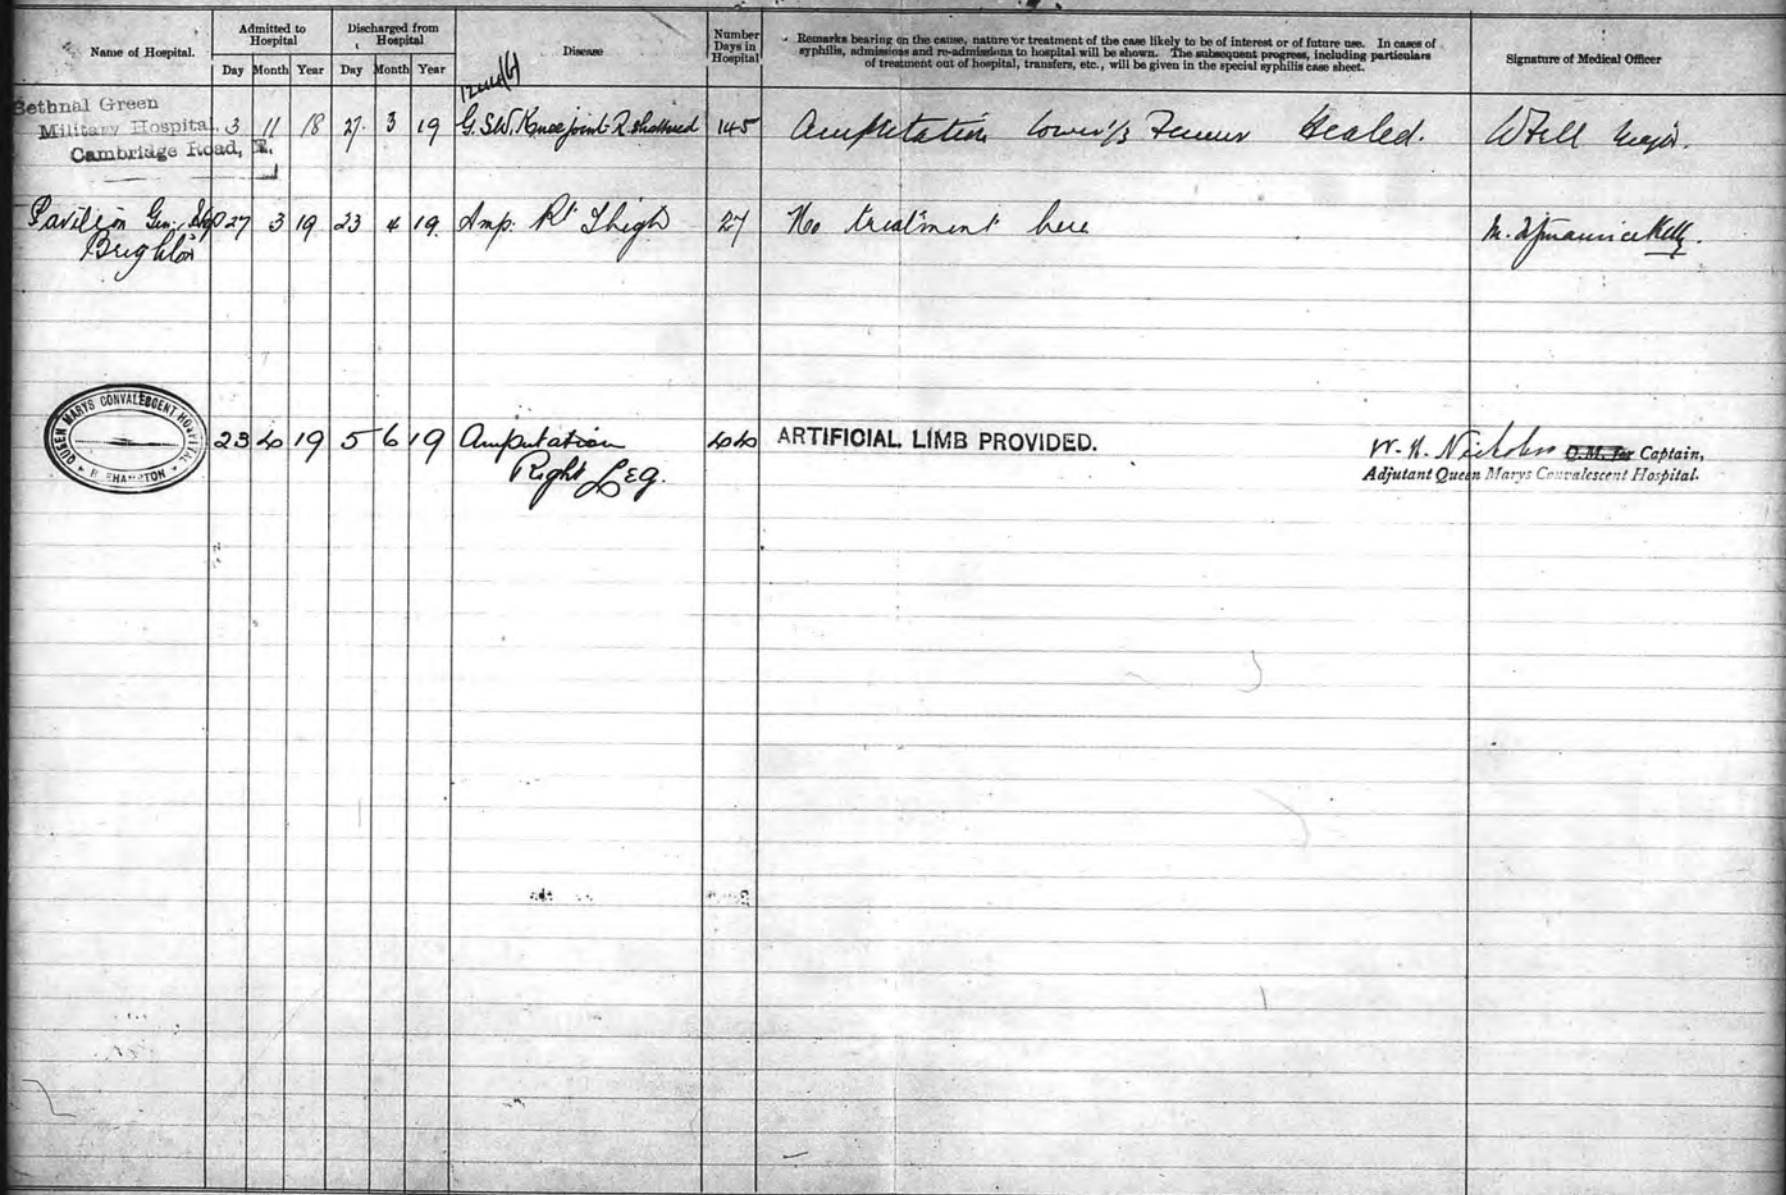 Name of Hospital.
Admitted to Hospital
Discharged from Hospital
Disease
Number Days in Hospital
Remarks bearing on the cause, nature or treatment of the case likely to be of interest or of future use. In cases of
syphilis, admissions and re-admissions to hospital will be shown. The subsequent progress, including particulars
of treatment out of hospital, transfers, etc., will be given in the special syphilis case sheet.
Signature of Medical Officer
Day Month Year Day Month Year
Bethnal Green
Military Hospital
Cambridge Road, E.
3 11 18 27. 3 19 G.S.W. Knee joint R. shattered 145 Amputation lower 1/3 Femur Healed. Major.
Pavilion Gen. Hosp
Brighton
27 3 19 23 4 19 Amp. Rt Thigh 27 No treatment here M. Kelly.
QUEEN MARYS CONVALESCENT HOSPITAL
23 4 19 5 6 19 Amputation
Right Leg.
44 ARTIFICIAL LIMB PROVIDED.
W. H. Captain,
Adjutant Queen Marys Convalescent Hospital.